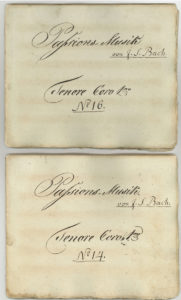 Passions-Musik
von J. S. Bach.
Tenore Coro Imo
No 16.
Passions-Musik
von J. S. Bach.
Tenore Coro Imo
No 14.